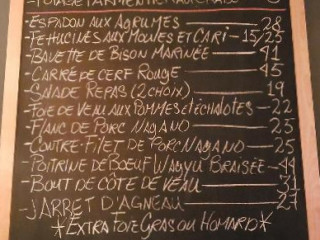 -Espadon aux Agrumes — 28
-Fettucines aux Moules et Cari - 15/25
-Bavette de Bison Marinée — 41
-Carré de cerf Rouge — 45
-Salade Repas (2 choix) — 19
-Foie de Veau aux Pommes et échalotes - 22
-Flanc de Porc Nagano — 25
-Contre-Filet de Porc Nagano — 25
-Poitrine de Boeuf Wagyu Braisée - 44
-Bout de côte de veau —
-Jarret d'Agneau — 27
*Extra Foie Gras ou Homard*